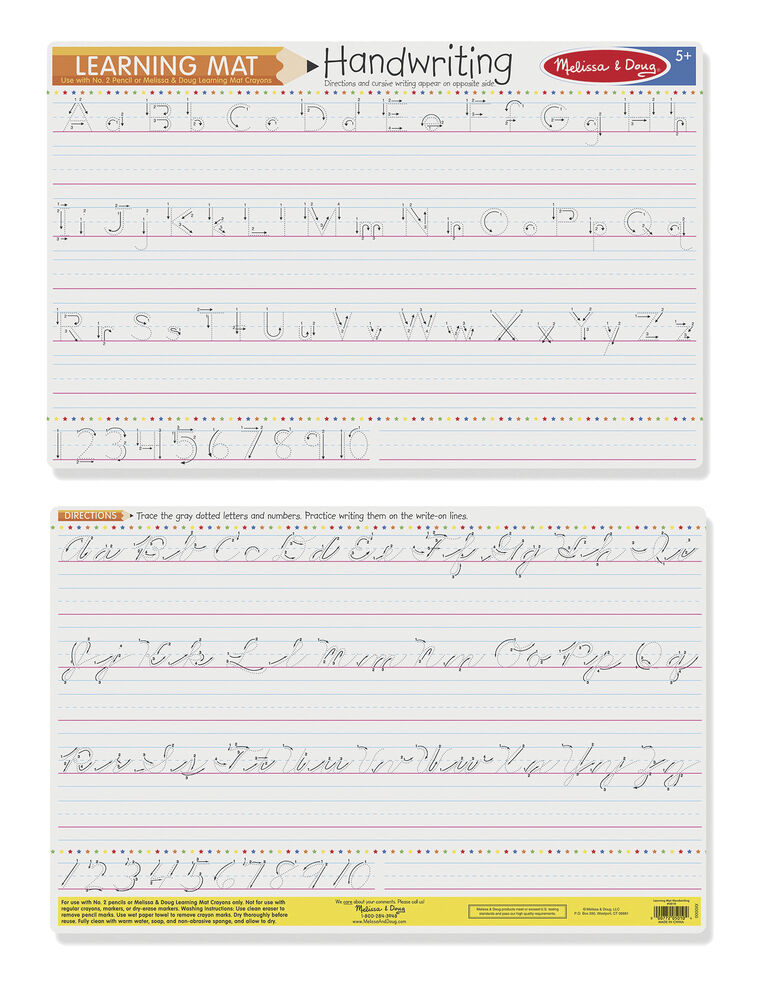 LEARNING MAT
Use with No. 2 Pencil or Melissa & Doug Learning Mat Crayons
Handwriting
Directions and cursive writing appear on opposite side.
Melissa & Doug
5+
A a B b C c D d E e F f G g H h
I i J j K k L l M m N n O o P p Q q
R r S s T t U u V v W w X x Y y Z z
1 2 3 4 5 6 7 8 9 10
DIRECTIONS
Trace the gray dotted letters and numbers. Practice writing them on the write-on lines.
A a B b C c D d E e F f G g H h I i
J j K k L l M m N n O o P p Q q
R r S s T t U u V v W w X x Y y Z z
1 2 3 4 5 6 7 8 9 10
For use with No. 2 pencils or Melissa & Doug Learning Mat Crayons only. Not for use with
regular crayons, markers, or dry-erase markers. Washing Instructions: Use clean eraser to
remove pencil marks. Use wet paper towel to remove crayon marks. Dry thoroughly before
reuse. Fully clean with warm water, soap, and non-abrasive sponge, and allow to dry.
We care about your comments. Please call us!
Melissa & Doug
1-800-284-3948
www.MelissaAndDoug.com
Melissa & Doug products meet or exceed U.S. testing
standards and pass our high quality requirements.
© Melissa & Doug, LLC
P.O. Box 590, Westport, CT 06881
Learning Mat-Handwriting
MADE IN CHINA